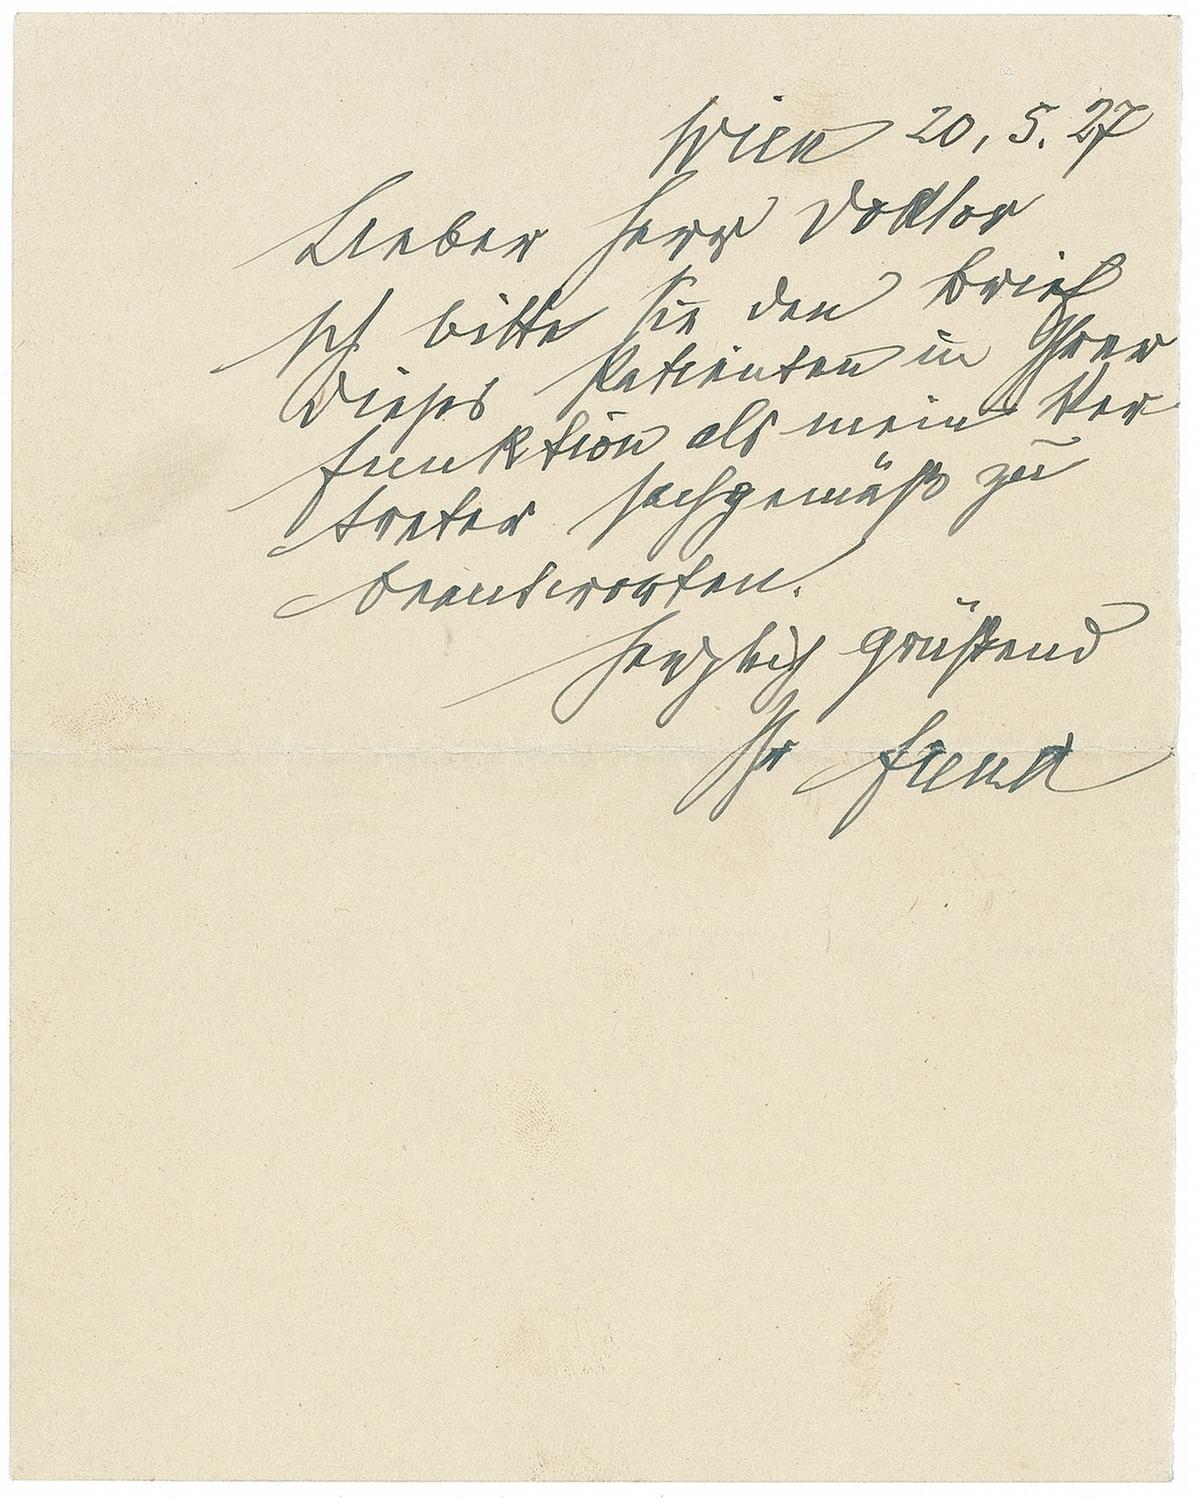 Wien 20, 5. 27
Lieber Herr Doktor
Ich bitte Sie den Brief
dieses Patienten in Ihrer
Funktion als mein Ver
treter sachgemäß zu
beantworten.
Herzlich grüßend
Ihr